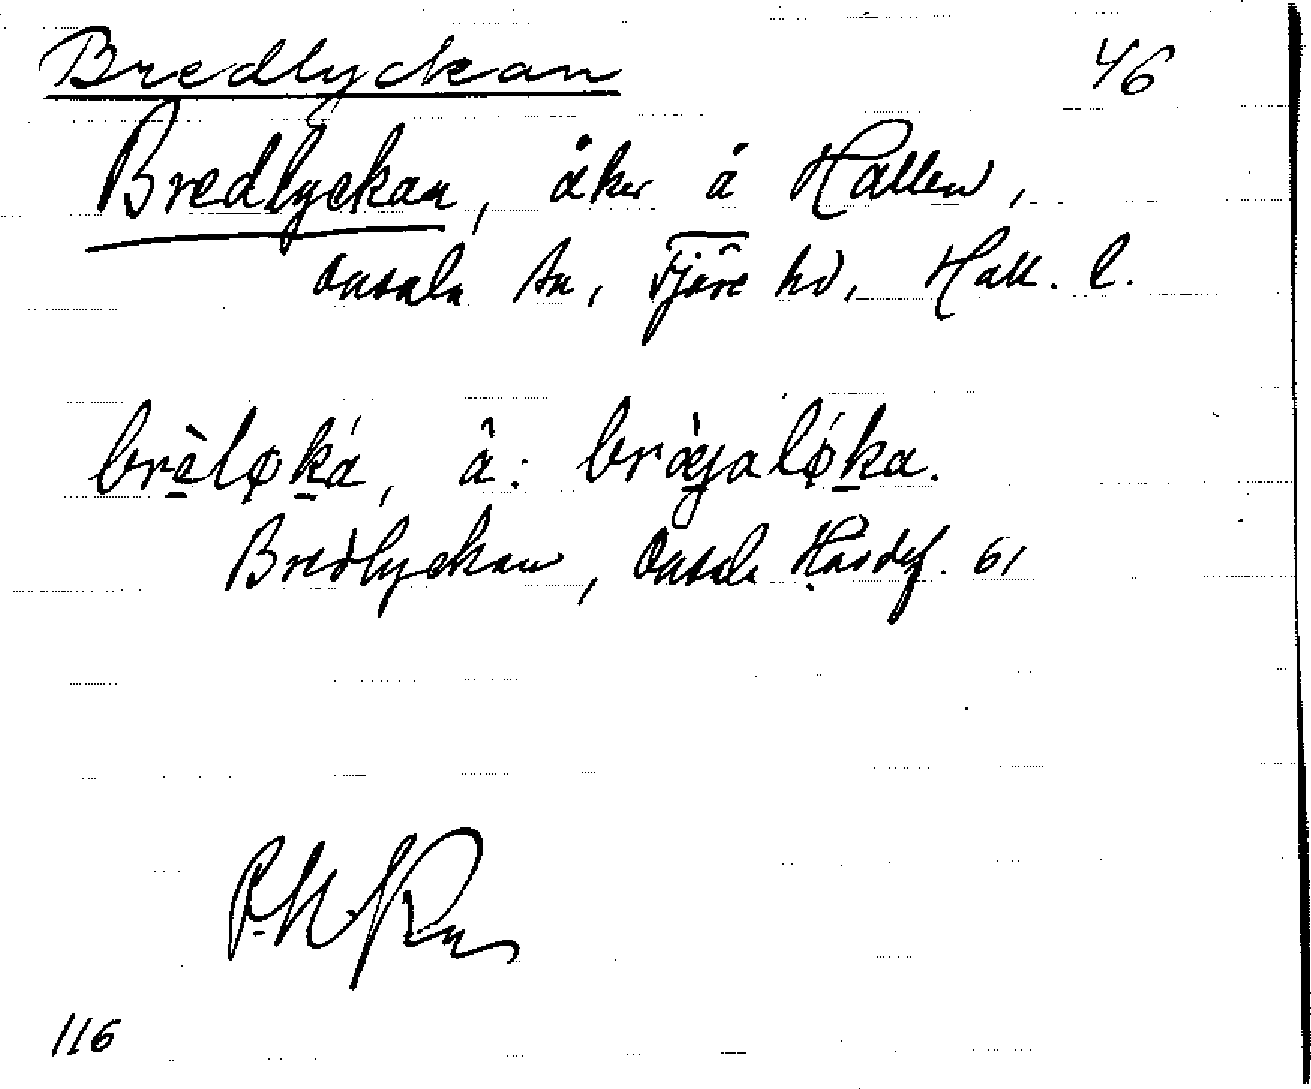 Bredlyckan 46
Bredlyckan, åker å Hallen,
Onsala sn, Fjäre hd, Hall. l.
brèløká, å: bræ̀jaløka.
Bredlyckan, Onsala 61
116